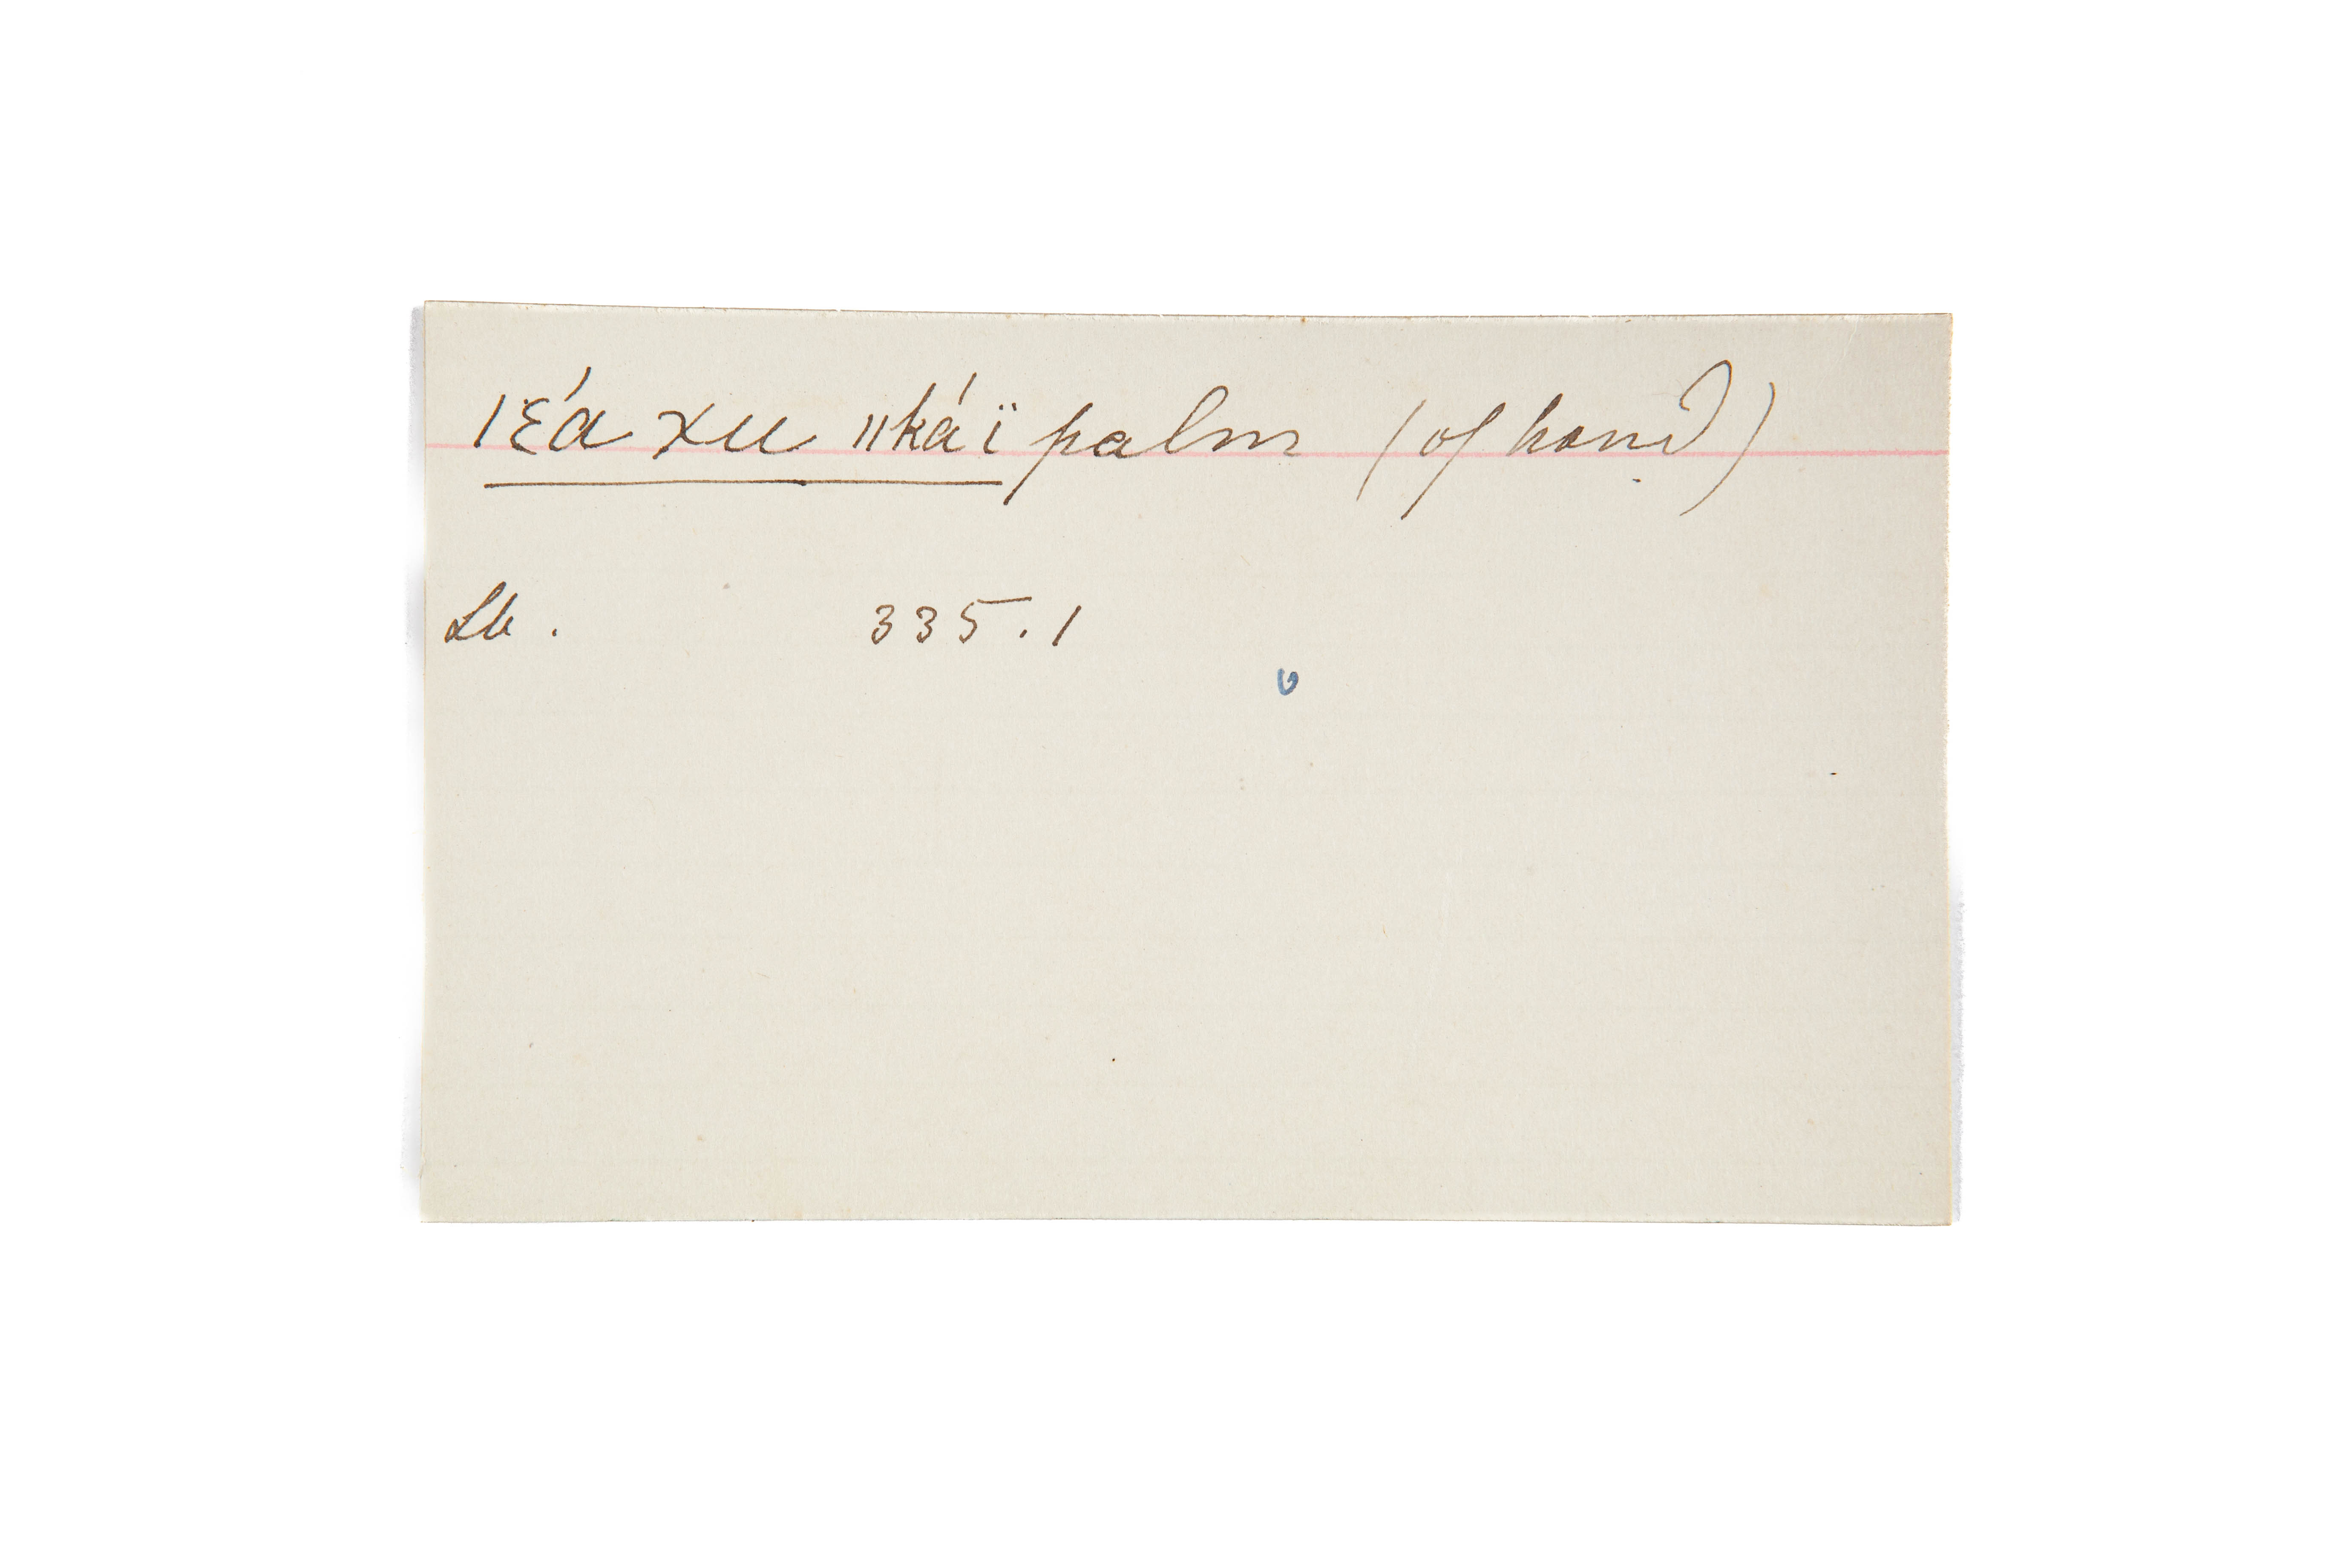 |ɛ́a χu ‖ká́ï palm (of hand)
Lb. 335.1